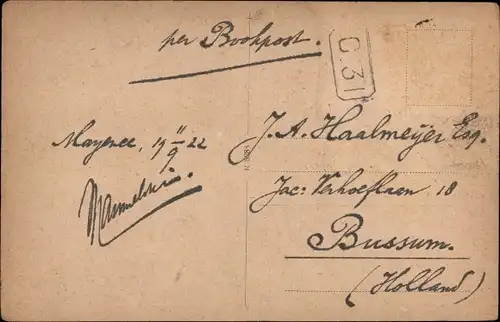 per Bookpost.
C.31
Mayence, 19 11/9 22
J. A. Haalmeyer Esq.
Jac: Verhoeflaan 18
Bussum.
(Holland)